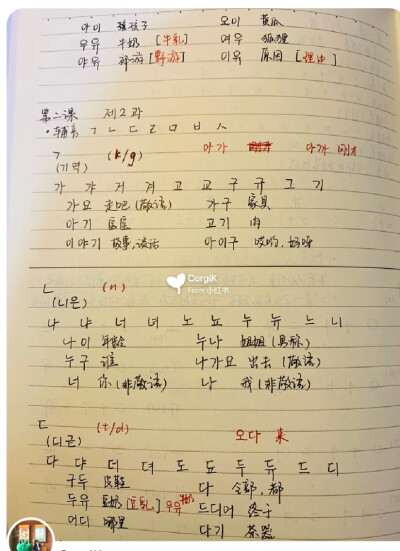 아이 孩子 오이 黄瓜
우유 牛奶 [牛乳] 여우 狐狸
야유 郊游 [野游] 이유 原因 [理由]
第二课 제2과
·辅音 ㄱ ㄴ ㄷ ㄹ ㅁ ㅂ ㅅ
ㄱ (k/g) 아가 아까 刚才
(기역)
가 갸 거 겨 고 교 구 규 그 기
가요 走吧 (敬语) 가구 家具
아기 고기 肉
이야기 故事, 谈话 아이구 哎哟, 好呀
CorgiK
From 小红书
ㄴ (n)
(니은)
나 냐 너 녀 노 뇨 누 뉴 느 니
나이 年龄 누나 姐姐 (男称)
누구 谁 나가요 出去 (敬语)
너 你 (非敬语) 나 我 (非敬语)
ㄷ (t/d) 오다 来
(디귿)
다 댜 더 뎌 도 됴 두 듀 드 디
구두 皮鞋 다 全部, 都
두유 豆奶 [豆乳] 우유 牛奶 드디어 终于
어디 哪里 다기 茶器